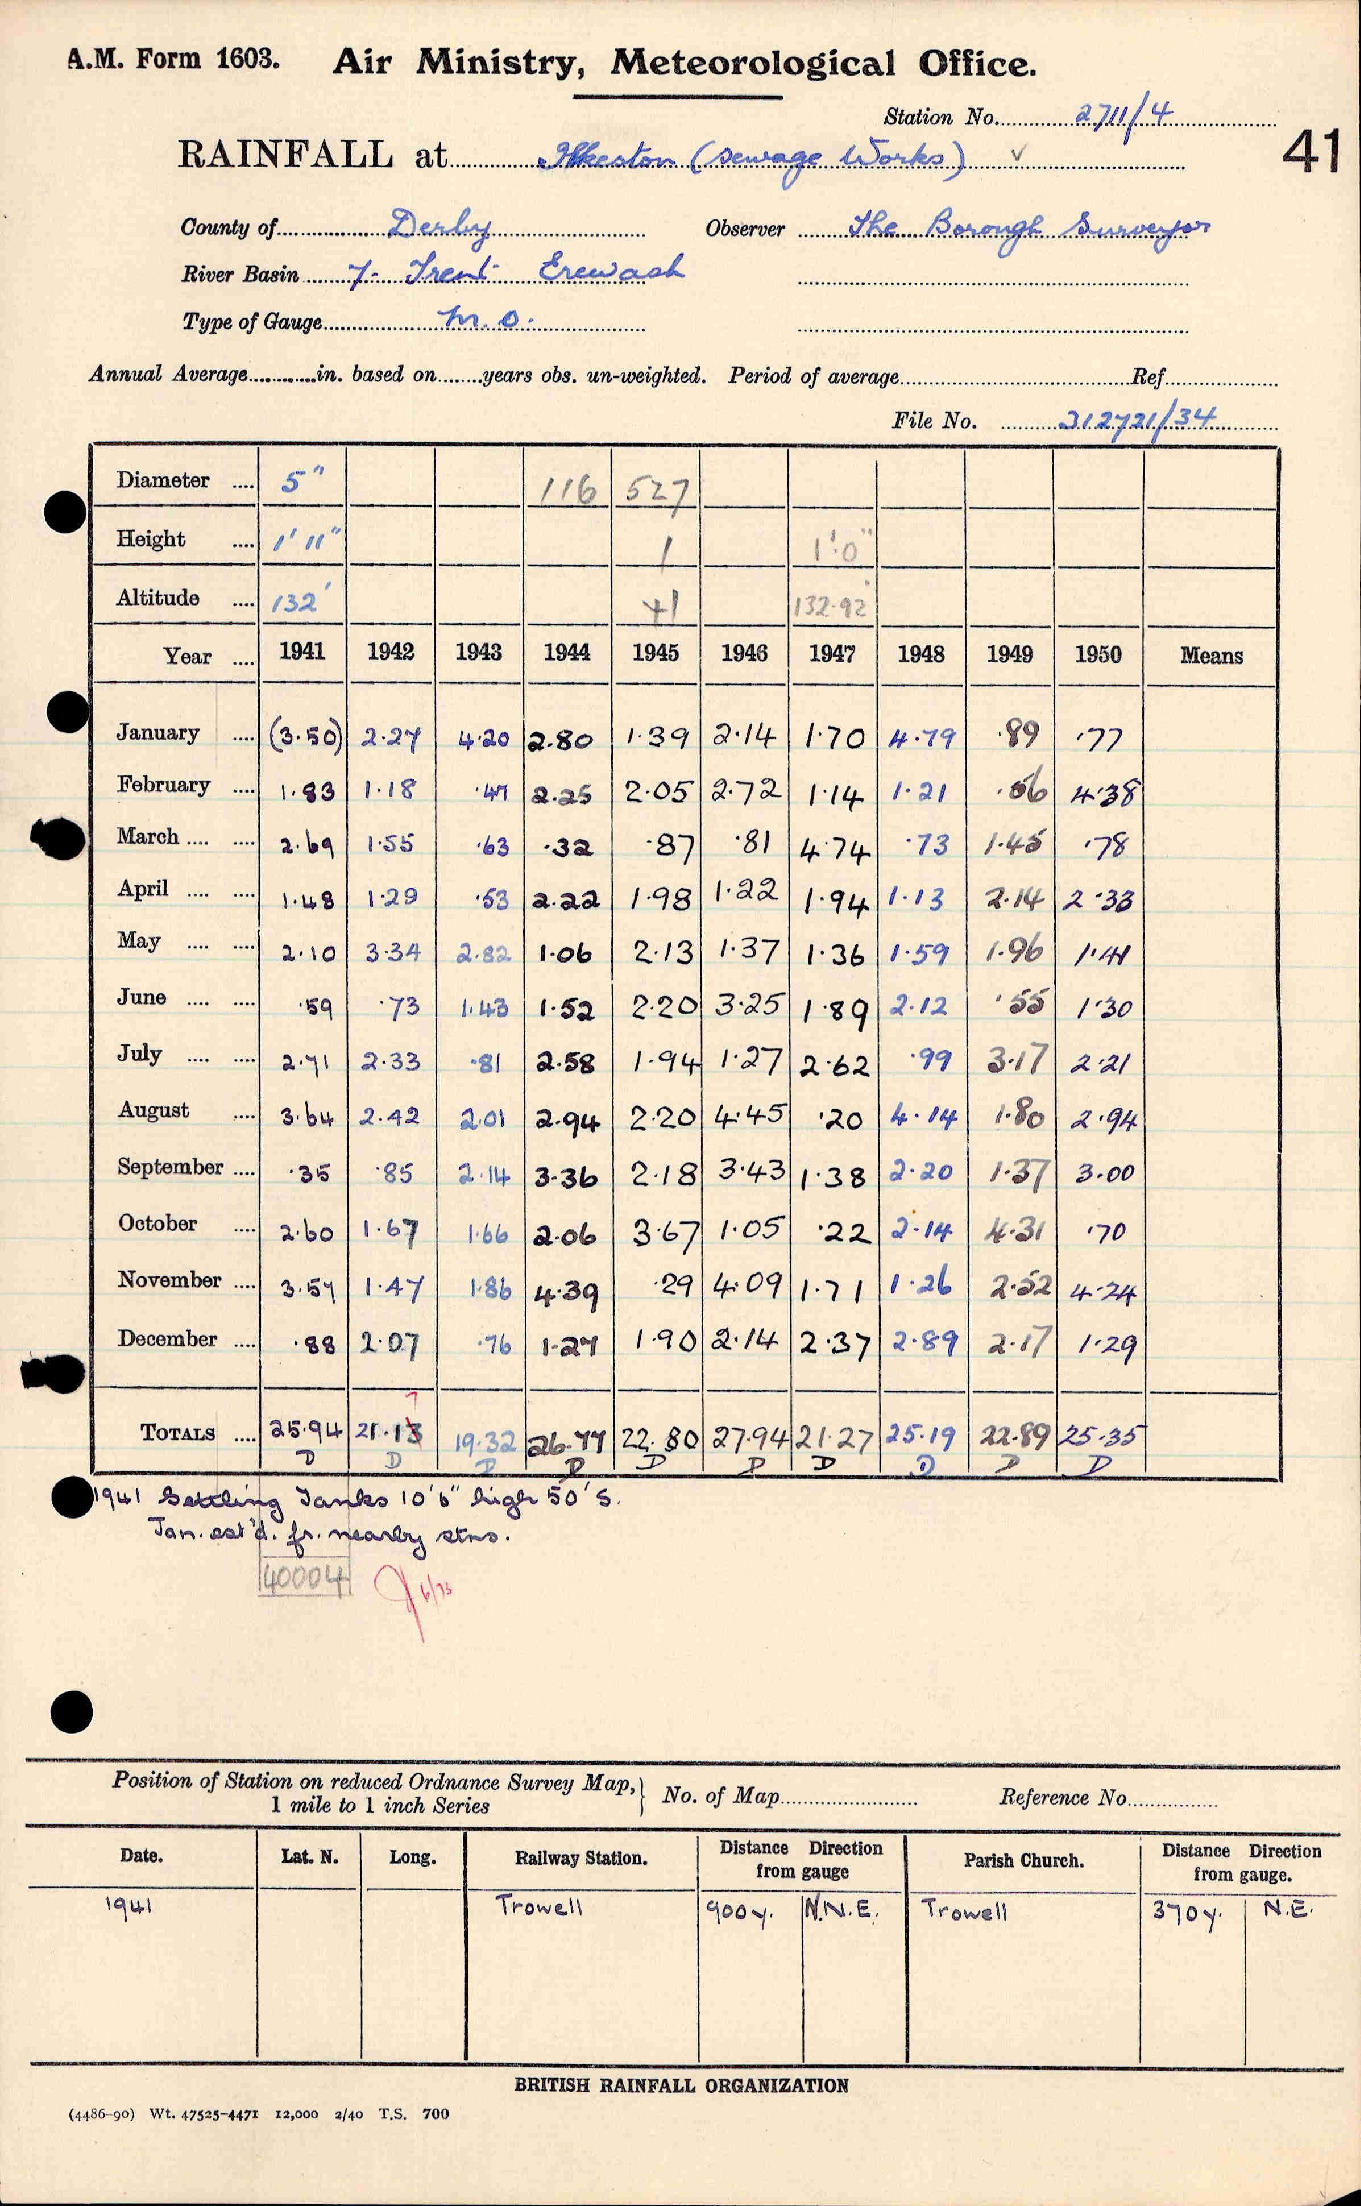 A.M. Form 1603. Air Ministry, Meteorological Office.
Station No. 2711/4
RAINFALL at Ilkeston (Sewage Works) ✓ 41
County of Derby Observer The Borough Surveyor
River Basin 7- Trent Erewash
Type of Gauge M.O.
Annual Average............in. based on........years obs. un-weighted. Period of average.......... Ref..........
File No. 312721/34
Diameter .... 5" 116 527
Height .... 1' 11" 1 1'0"
Altitude .... 132' 41 132.92'
Year .... 1941 1942 1943 1944 1945 1946 1947 1948 1949 1950 Means
January .... (3.50) 2.27 4.20 2.80 1.39 2.14 1.70 4.79 .89 .77
February .... 1.83 1.18 .47 2.25 2.05 2.72 1.14 1.21 .56 4.38
March .... .... 2.69 1.55 .63 .32 .87 .81 4.74 .73 1.45 .78
April .... .... 1.48 1.29 .53 2.22 1.98 1.22 1.94 1.13 2.14 2.33
May .... .... 2.10 3.34 2.82 1.06 2.13 1.37 1.36 1.59 1.96 1.41
June .... .... .59 .73 1.43 1.52 2.20 3.25 1.89 2.12 .55 1.30
July .... .... 2.71 2.33 .81 2.58 1.94 1.27 2.62 .99 3.17 2.21
August .... 3.64 2.42 2.01 2.94 2.20 4.45 .20 4.14 1.80 2.94
September .... .35 .85 2.14 3.36 2.18 3.43 1.38 2.20 1.37 3.00
October .... 2.60 1.67 1.66 2.06 3.67 1.05 .22 2.14 4.31 .70
November .... 3.57 1.47 1.86 4.39 .29 4.09 1.71 1.26 2.52 4.24
December .... .88 2.07 .76 1.27 1.90 2.14 2.37 2.89 2.17 1.29
7
TOTALS .... 25.94 21.13 19.32 26.77 22.80 27.94 21.27 25.19 22.89 25.35
D D D D D D D D D D
1941 Settling Tanks 10'6" high 50'S.
Jan. est'd. fr. nearby stns.
40004 6/73
Position of Station on reduced Ordnance Survey Map, } No. of Map.......... Reference No..........
1 mile to 1 inch Series
Date. Lat. N. Long. Railway Station. Distance from gauge Direction Parish Church. Distance from gauge. Direction
1941 Trowell 900y. N.N.E. Trowell 370y. N.E.
BRITISH RAINFALL ORGANIZATION
(4486-90) Wt. 47525-4471 12,000 2/40 T.S. 700